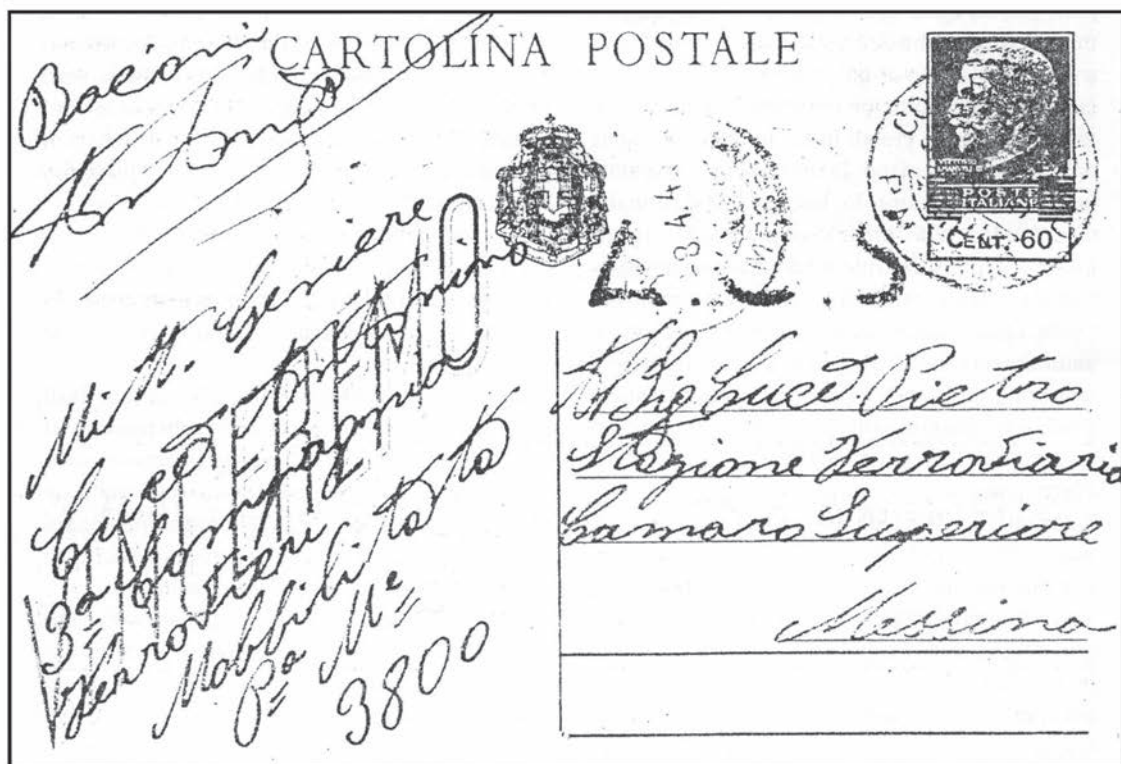 CARTOLINA POSTALE
Bacioni
Antonio
POSTE
ITALIANE
CENT. 60
A.C.S
VINCEREMO
Mi. N. Geniere
Cucè Antonino
3ª Compagnia
Ferrovieri
Mobbilitata
Pª Mª
3800
Al Sig Cucè Pietro
Stazione Ferroviaria
Camaro Superiore
Messina